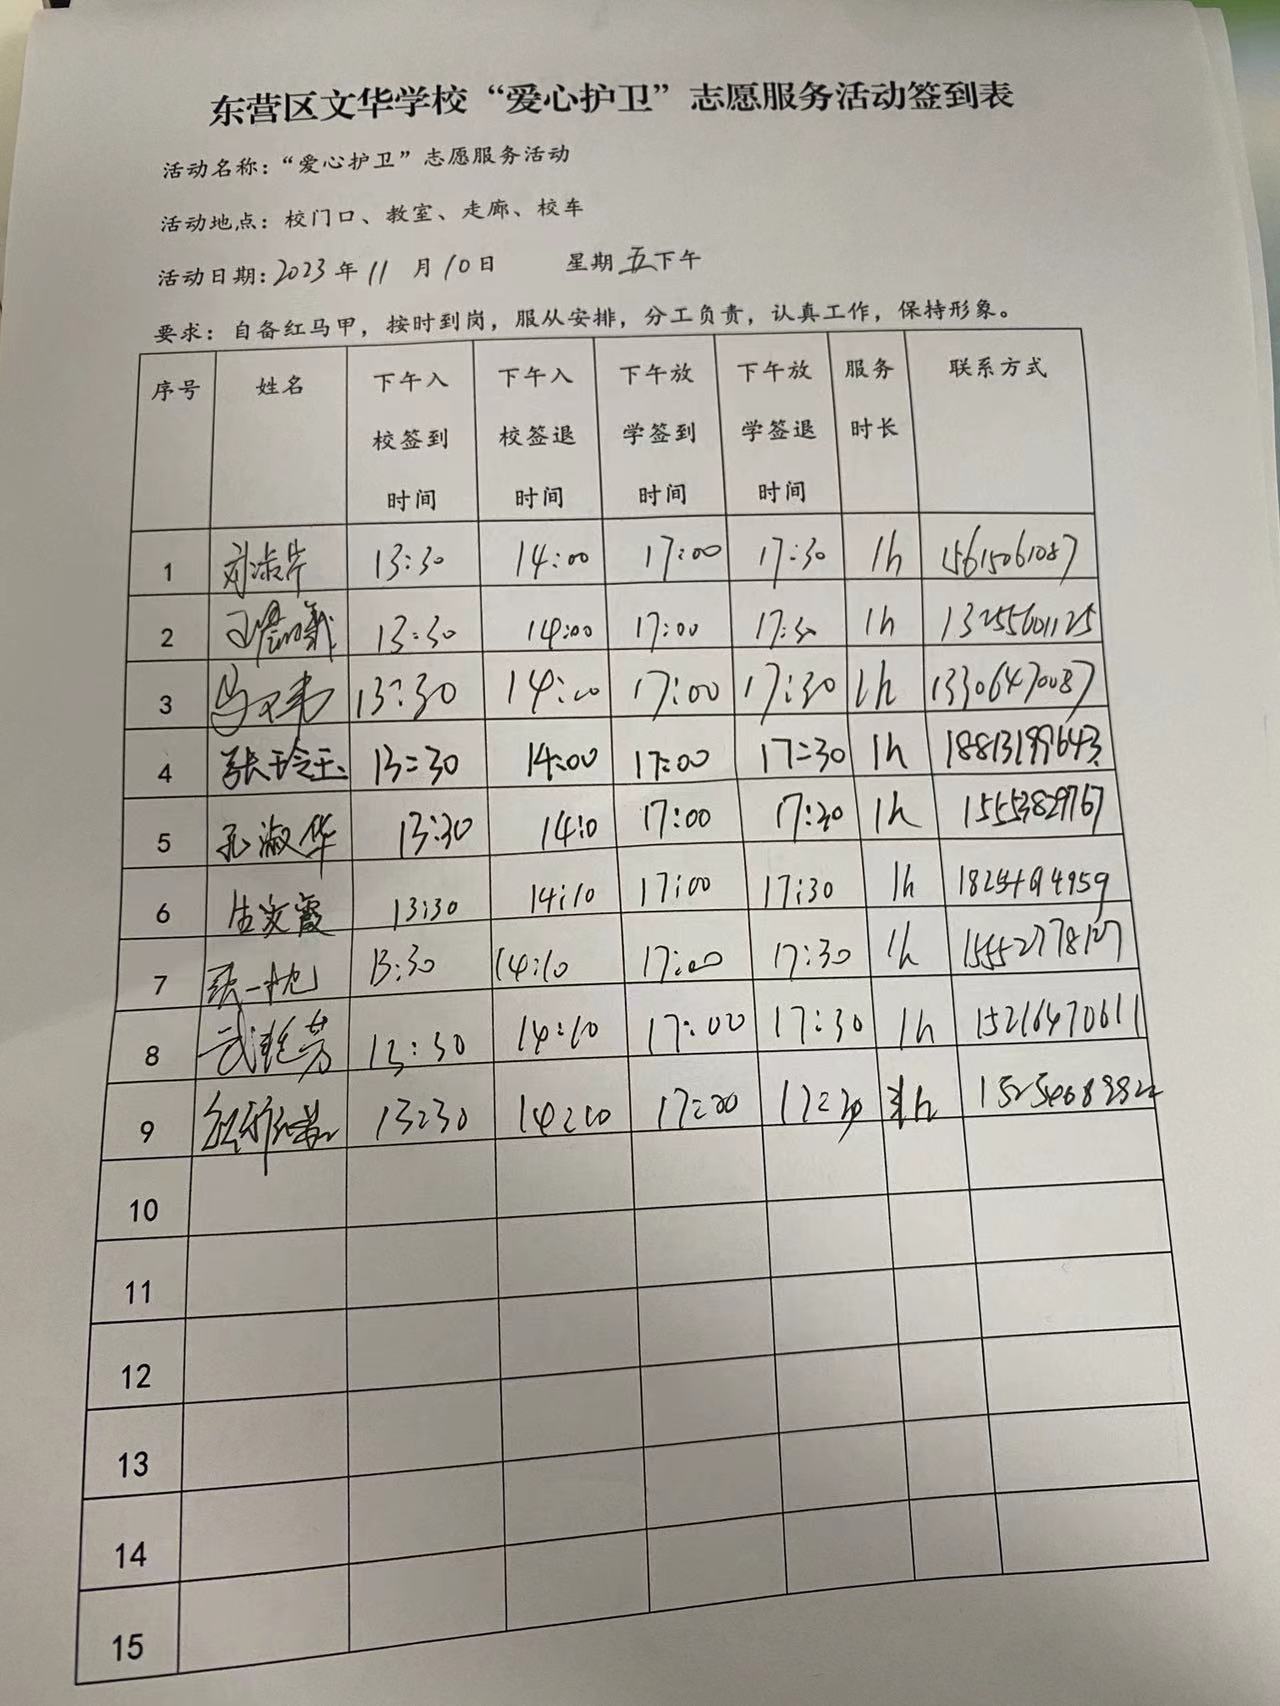 东营区文华学校“爱心护卫”志愿服务活动签到表
活动名称：“爱心护卫”志愿服务活动
活动地点：校门口、教室、走廊、校车
活动日期：2023年11月10日 星期五下午
要求：自备红马甲，按时到岗，服从安排，分工负责，认真工作，保持形象。
序号 姓名 下午入校签到时间 下午入校签退时间 下午放学签到时间 下午放学签退时间 服务时长 联系方式
1 13:30 14:00 17:00 17:30 1h 15615061087
2 13:30 14:00 17:00 17:30 1h 13255601125
3 13:30 14:00 17:00 17:30 1h 13306470087
4 张玲玉 13:30 14:00 17:00 17:30 1h 18813199643
5 孔淑华 13:30 14:0 17:00 17:30 1h 15553829767
6 生文霞 13:30 14:10 17:00 17:30 1h
7 13:30 14:10 17:00 17:30 1h
8 13:30 14:10 17:00 17:30 1h 15216470611
9 13:30 14:10 17:00 17:30 h
10
11
12
13
14
15